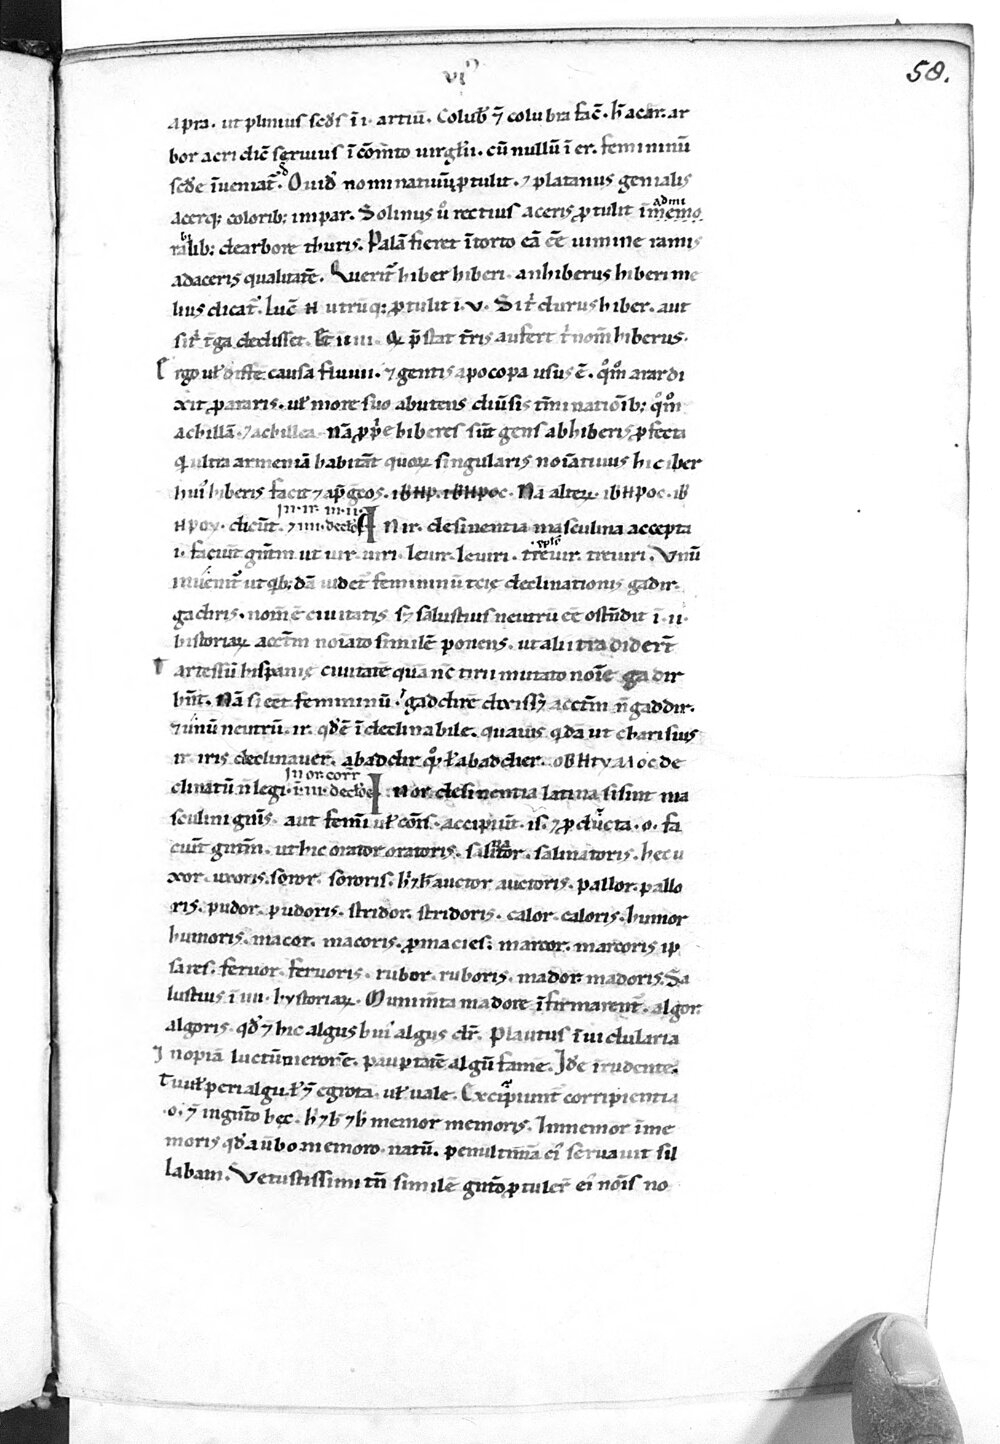 vi
58.
apra. ut plinius scds ĩ i. artiũ. Colub̄ ⁊ colubra fac̄. h̄ acar. ar
bor acri dic̄ servius ĩ cõm̃to virgłii. cũ nullũ ĩ er. femininũ
scd̄e ĩueniat᷑. Ouid᷑ nominatiuũ ꝓtulit. ⁊ platanus genialis
acerq; colorib; impar. Solinus ů rectius aceris ꝓtulit ĩ admi memo
ralib; de arbore thuris. Palã fieret ĩtorto eã eē uimine ramis
ad aceris qualitatē. Querit᷑ hiber hiberi. an hiberus hiberi me
lius dicat᷑. Luc̄ N utrũq; ꝓtulit ĩ. v. Sit᷑ durus hiber. aut
sit᷑ t̃ga dedisset. Et ĩ iiii. Q̃ p̄stat t̃ris aufert t᷑ nom̃ hiberus.
Ergo uł diffe causa fluuii. ⁊ gentis apocopa usus ē. q̊m̊ arar di
xit ꝓ araris. uł more suo abutens diũsis t̃minatiõib; q̊m̊
achillã. ⁊ achillea. nã ꝓp̃e hiberes sũt gens ab hiberis ꝓfecta
q̃ ultra armeniã habitãt quoꝝ singularis noĩatiuus hic iber
hui᷒ hiberis facit ⁊ ap̃ g̃cos. ıвнр. ıвнрос. Nã alteꝝ. ıвнрос. ıв
нроу. dicũt. In ir. iii. ii. ⁊ iiii. declõe IN ir. desinentia masculina accepta
i. faciũt gñt̃m ut uir. uiri. leuir. leuiri. treuir. treuiri. Vnũ
inuenit᷑ ut q̃b; dã uidet᷑ femininũ tcię declinationis gadir.
gadiris. nom̃ ē ciuitatis s; salustius neutrũ eē ostñdit ĩ. ii.
historiaꝝ acct̃m noĩato similē ponens. ut alii tradidert̃
Tartessũ hispanię ciuitatē quã nc̄ tirii mutato noĩe gadir
hñt. Nã si eēt femininũ. gaddirē dixiss; acct̃m ñ gaddir.
⁊ unũ neutrũ. ir. qd̄ ē ĩdeclinabile. quãuis q̃dã ut charisius
ir. iris declinauer̃. abaddir q̊ ł abaddier. de
clinatũ ñ legi. In or. corr̃ ĩ. iii. declõe IN or desinentia latina si sint ma
sculini gñis. aut femĩ uł cõis. accipiũt. is. ⁊ ꝓducta. o. fa
ciũt gñt̃m. ut hic orator oratoris. salitor. salinatoris. hec u
xor. uxoris. soror. sororis. h̃ ⁊ h̃ auctor auctoris. pallor. pallo
ris. pudor. pudoris. stridor. stridoris. calor. caloris. humor
humoris. macor. macoris. ꝓ macies. marcor. marcoris ip̄
sa res. feruor. feruoris. rubor. ruboris. mador. madoris. Sa
lustius ĩ iiii. hystoriaꝝ. Munim̃ta madore ĩfirmarent᷑. algor.
algoris. qd̄ ⁊ hic algus hui᷒ algus dr̃. Plautus ĩ uidularia
Inopiã luctũ merorē. paupertatē algũ famē. Idē ĩ rudente.
Tu uł peri algu. ł ⁊ egrota. uł uale. Excipiunt᷑ corripientia
.o. ⁊ ĩ ingñto hec. h̃ ⁊ h̃ ⁊ h̃ memor memoris. Immemor ĩme
moris qd̄ a ũbo memoro. natũ. penultimã ei᷒ seruauit sil
labam. Vetustissimi tñ similē gñto ꝓtuler̃ ei᷒ nõis no